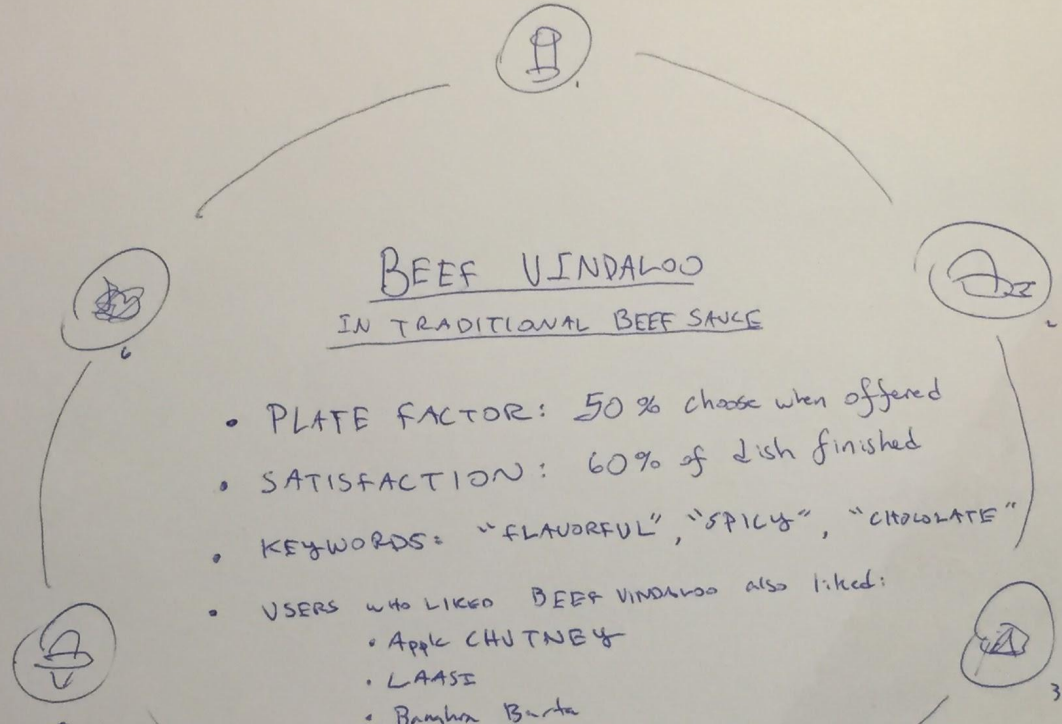 1
2
6
BEEF VINDALOO
IN TRADITIONAL BEEF SAUCE
• PLATE FACTOR: 50% choose when offered
• SATISFACTION: 60% of dish finished
• KEYWORDS: "FLAVORFUL", "SPICY", "CHOCOLATE"
• USERS WHO LIKED BEEF VINDALOO also liked:
• Apple CHUTNEY
• LAASI
3